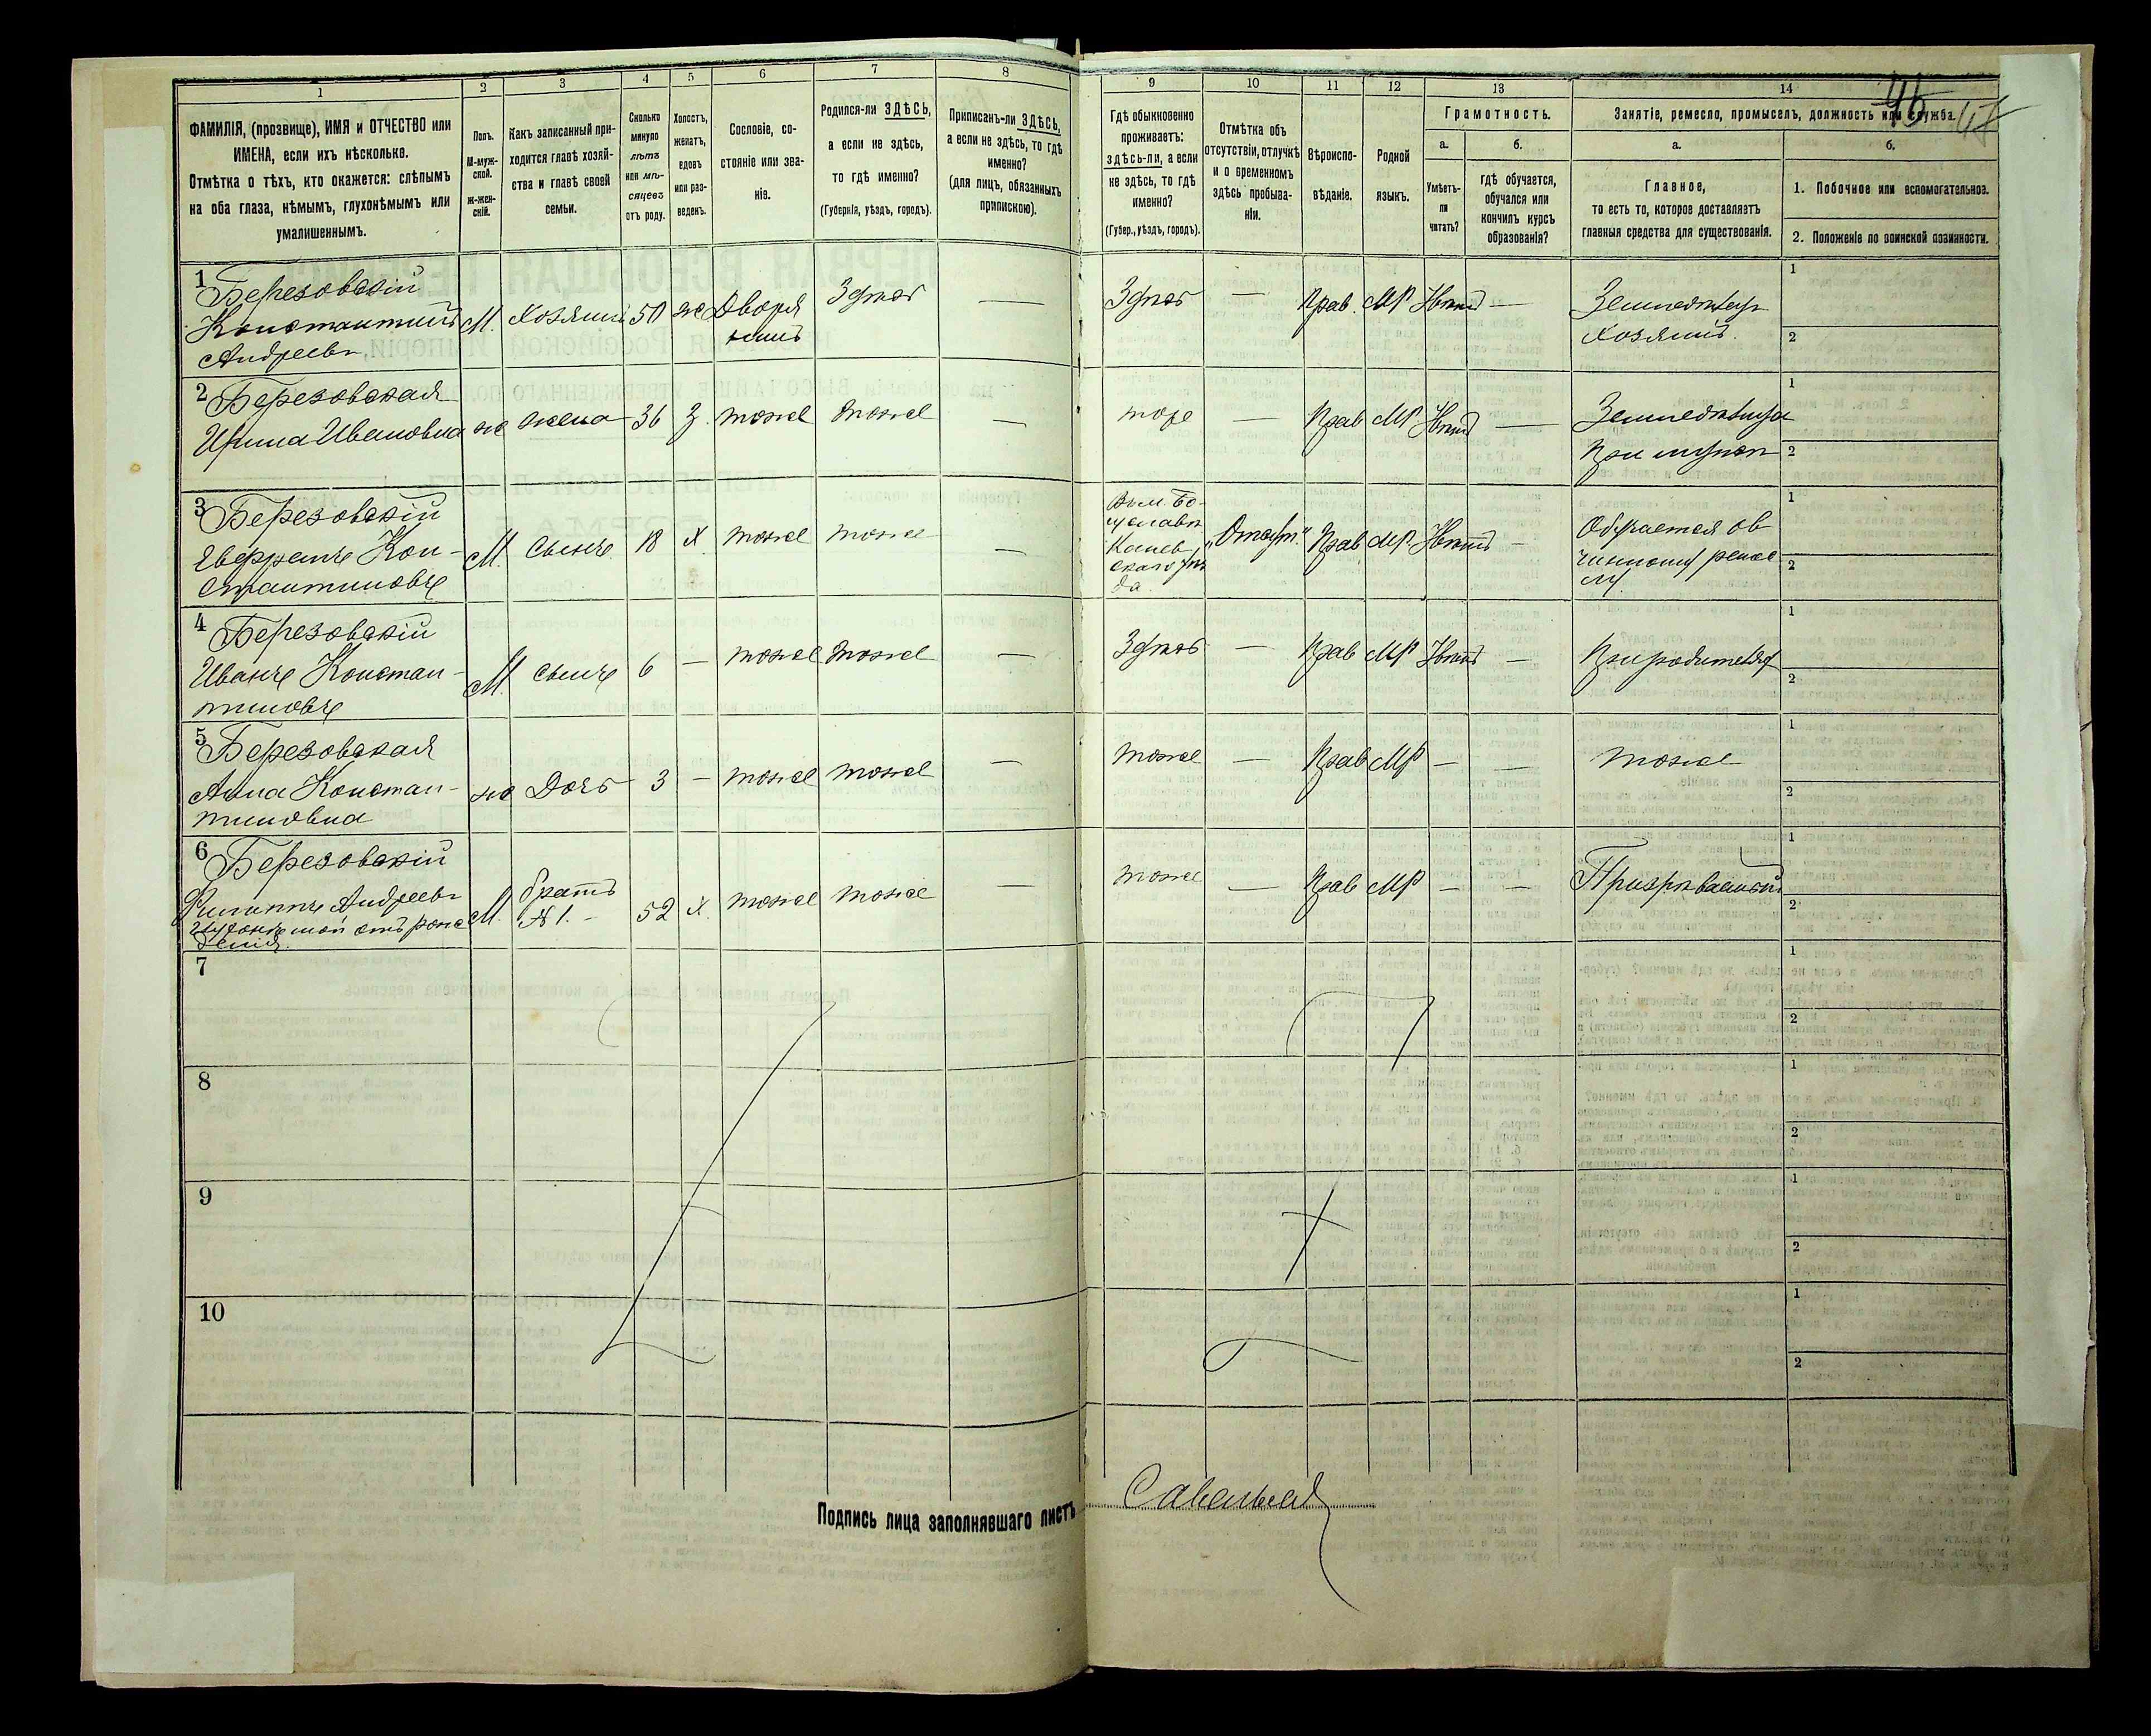 1 2 3 4 5 6 7 8 9 10 11 12 13 14
ФАМИЛІЯ, (прозвище), ИМЯ и ОТЧЕСТВО или
ИМЕНА, если ихъ нѣсколько.
Отмѣтка о тѣхъ, кто окажется: слѣпымъ
на оба глаза, нѣмымъ, глухонѣмымъ или
умалишеннымъ.
Полъ.
М-муж-
ской.
Ж-жен-
скій.
Какъ записанный при-
ходится главѣ хозяй-
ства и главѣ своей
семьи.
Сколько
минуло
лѣтъ
или мѣ-
сяцевъ
отъ роду.
Холостъ,
женатъ,
вдовъ
или раз-
веденъ.
Сословіе, со-
стояніе или зва-
ніе.
Родился-ли ЗДѢСЬ,
а если не здѣсь,
то гдѣ именно?
(Губернія, уѣздъ, городъ).
Приписанъ-ли ЗДѢСЬ,
а если не здѣсь, то гдѣ
именно?
(для лицъ, обязанныхъ
припискою).
Гдѣ обыкновенно
проживаетъ:
здѣсь-ли, а если
не здѣсь, то гдѣ
именно?
(Губер., уѣздъ, городъ).
Отмѣтка объ
отсутствіи, отлучкѣ
и о временномъ
здѣсь пребыва-
ніи.
Вѣроиспо-
вѣданіе.
Родной
языкъ.
Грамотность.
а.
Умѣетъ-
ли
читать?
б.
гдѣ обучается,
обучался или
кончилъ курсъ
образованія?
Занятіе, ремесло, промыселъ, должность или служба.
а.
Главное,
то есть то, которое доставляетъ
главныя средства для существованія.
б.
1. Побочное или вспомогательное.
2. Положеніе по воинской повинности.
1 Березовскій
Константинъ
Андреевъ
М. Хозяинъ 50 ж Дворя
нинъ
Здѣсь — Здѣсь — Прав. МР Нѣтъ —
Земледѣлецъ
хозяинъ.
1
2
2 Березовская
Ирина Ивановна
ж жена 36 З. тоже тоже — тоже — Прав МР Нѣтъ —
Земледѣлица
При мужѣ
1
2
3 Березовскій
Кон-
стантиновъ
М. Сынъ 18 Х тоже тоже —
Въ м. Бо-
гуславѣ
Канев-
скаго уѣз
да.
„Отсут." Прав МР. Нѣтъ —
Обучается ов
чинному ремес
лу
1
2
4 Березовскій
Иванъ Констан-
тиновъ
М. Сынъ 6 — тоже тоже — Здѣсь — Прав МР Нѣтъ —
При родителях
1
2
5 Березовская
Анна Констан-
тиновна
ж Дочь 3 — тоже тоже — тоже — Прав МР — — тоже
1
2
6 Березовскій
Филиппъ Андреевъ
глухонѣмой отъ рож
денія.
М. братъ
№ 1. —
52 Х. тоже тоже — тоже — Прав МР — — Призрѣваемый
1
2
7
1
2
8
1
2
9
1
2
10
1
2
Подпись лица заполнявшаго листъ